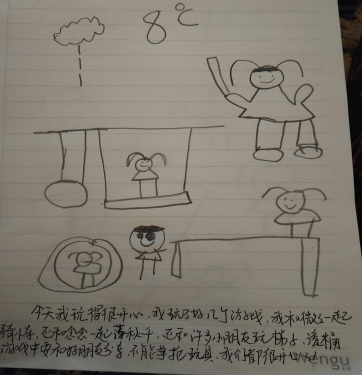 8℃
今天我玩得很开心,我玩了好几个游戏,我和微一起
骑小车,还和念念一起荡秋千,还和许多小朋友玩梯子,滚桶
游戏中要和好朋友分享,不能单把玩具,我们都很开心